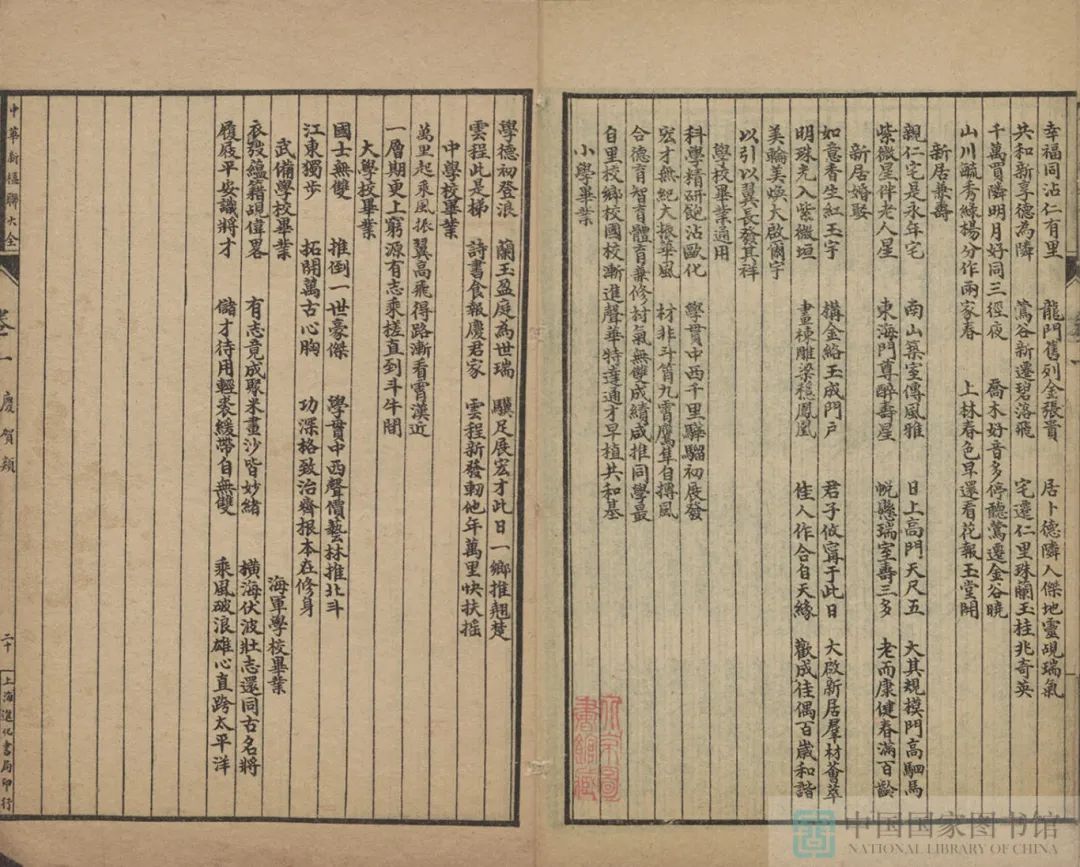 幸福同沾仁有里　龍門舊列金張貴　居卜德隣人傑地靈覘瑞氣
共和新享德為隣　鶯谷新遷碧落飛　宅遷仁里珠蘭玉桂兆奇英
千萬買隣明月好同三徑夜　喬木好音多停聽鶯遷金谷曉
山川毓秀綠楊分作兩家春　上林春色早還看花報玉堂開
新居兼壽
親仁宅是永年宅　南山築室傳風雅　日上高門天尺五　大其規模門高駟馬
紫微星伴老人星　東海門尊醉壽星　帨縣瑞室壽三多　老而康健春滿百齡
新居婚娶
如意香生紅玉宇　構金絡玉成門戶　君子攸寗于此日　大啟新居羣材薈萃
明珠光入紫微垣　畫棟雕梁穩鳳凰　佳人作合自天緣　歡成佳偶百歲和諧
美輪美煥大啟爾宇
以引以翼長發其祥
學校畢業通用
科學精研飽沾歐化　學貫中西千里驊騮初展發
宏才無紀大振華風　材非斗筲九霄鷹隼自摶風
合德育智育體育兼修材氣無雙成績咸推同學最
自里校鄉校國校漸進聲華特達通才早植共和基
小學畢業
學德初登浪　蘭玉盈庭為世瑞　驥足展宏才此日一鄉推翹楚
雲程此是梯　詩書食報慶君家　雲程新發軔他年萬里快扶搖
中學校畢業
萬里起乘風振翼高飛得路漸看霄漢近
一層期更上窮源有志乘槎直到斗牛間
大學校畢業
國士無雙　推倒一世豪傑　學貫中西聲價藝林推北斗
江東獨步　拓開萬古心胸　功深格致治齊根本在修身
武備學校畢業　海軍學校畢業
衣發蘊籍覘偉畧　有志竟成聚米畫沙皆妙緒　橫海伏波壯志還同古名將
履屐平安識將才　儲才待用輕裘緩帶自無雙　乘風破浪雄心直跨太平洋
中華新楹聯大全
卷一　慶賀類
二十
上海進化書局印行
中国国家图书馆
NATIONAL LIBRARY OF CHINA